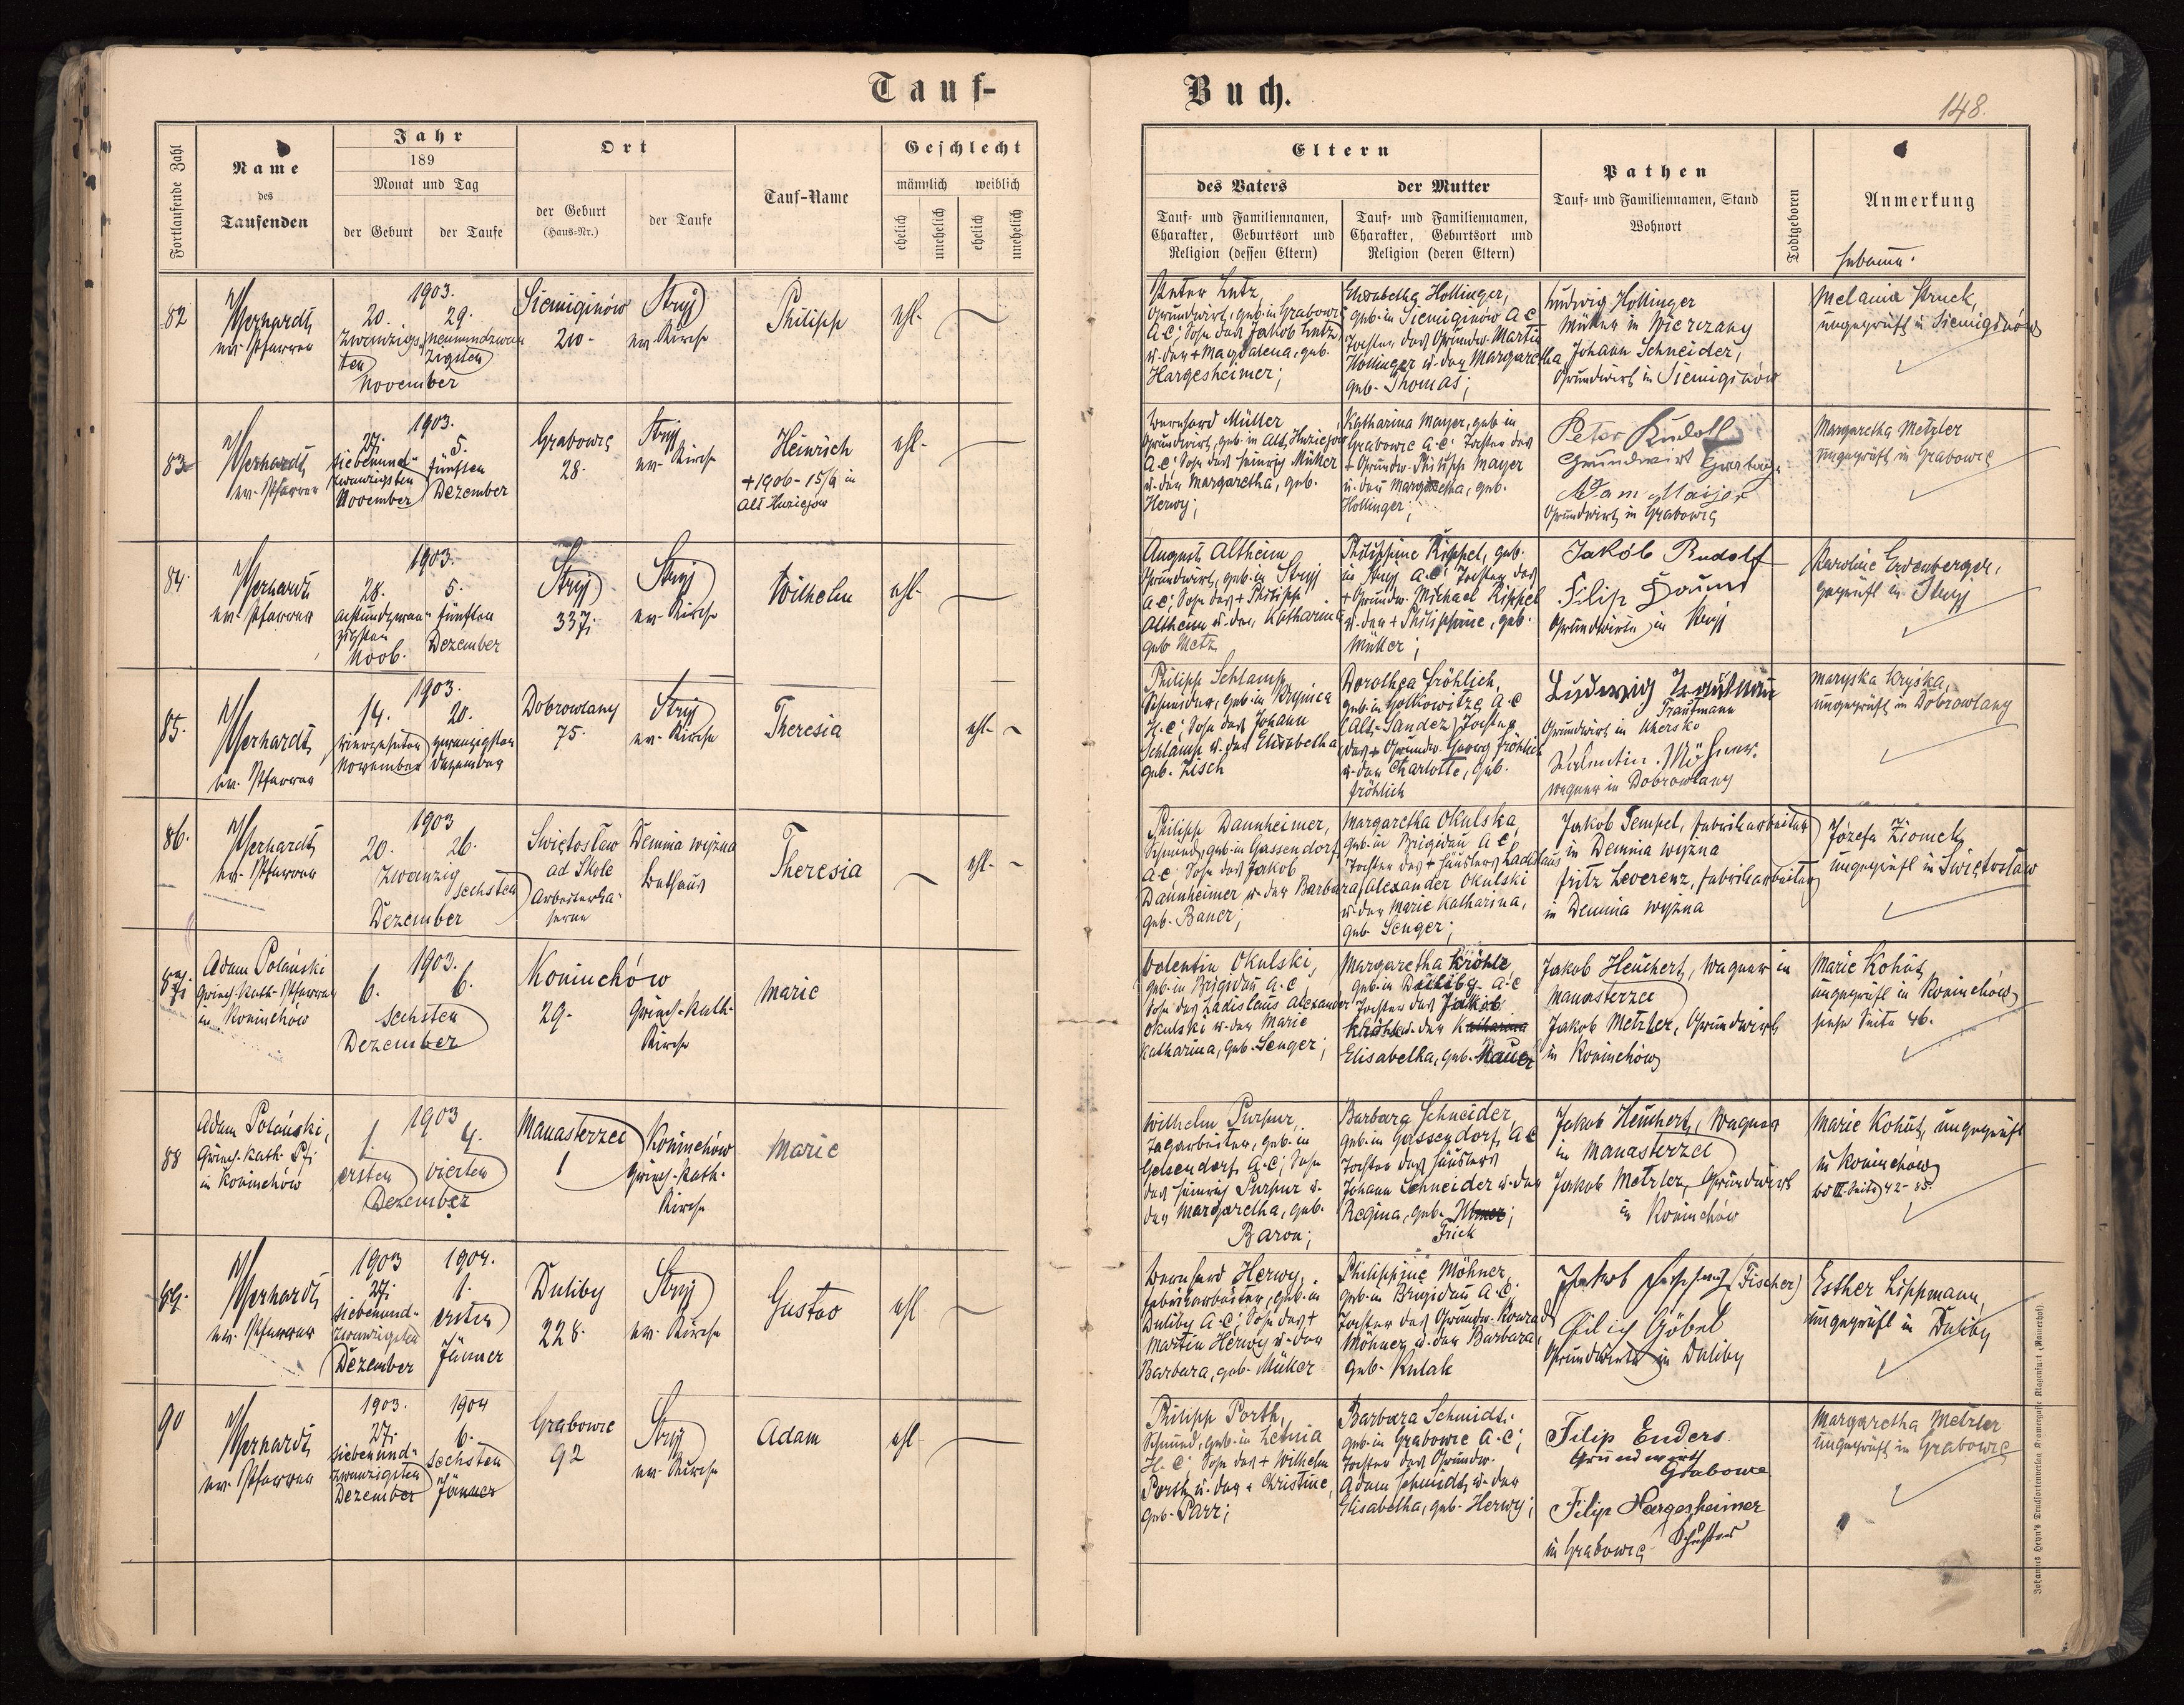 Tauf-
Buch.
148.
Fortlaufende Zahl
Name
des
Taufenden
Jahr
189
Monat und Tag
der Geburt
der Taufe
Ort
der Geburt
(Haus-Nr.)
der Taufe
Tauf-Name
Geschlecht
männlich
weiblich
ehelich
unehelich
ehelich
unehelich
Eltern
des Vaters
Tauf- und Familiennamen,
Charakter, Geburtsort und
Religion (dessen Eltern)
der Mutter
Tauf- und Familiennamen,
Charakter, Geburtsort und
Religion (deren Eltern)
Pathen
Tauf- und Familiennamen, Stand
Wohnort
Todtgeboren
Anmerkung
Hebamme.
82
ev. Pfarrer
1903.
20.
29.
Zwanzigs-
ten
neunundzwan
zigsten
November
Siemiginów
210-
Stryj
ev. Kirche
Philipp
ehl.
Peter Lutz,
Grundwirt, geb. in Grabowce
A.C; Sohn des Jakob Lutz
u. der + Magdalena, geb.
Hargesheimer;
Elisabetha Hollinger,
geb. in Siemiginów A.C
Tochter des Grundw. Martin
Hollinger u. der Margaretha,
geb. Thomas;
Ludwig Hollinger
Müller in Wierczany
Johann Schneider,
Grundwirt in Siemiginów
Melania Struck,
ungeprüft in Siemiginów
83
ev. Pfarrer
1903.
27.
5.
siebenund-
zwanzigsten
November
fünften
Dezember
Grabowce
28.
Stryj
ev. Kirche
Heinrich
+ 1906 - 15/9 in
Alt Huziejow
ehl.
Bernhard Müller
Grundwirt, geb. in Alt Huziejow
A.C; Sohn des Heinrich Müller
u. der Margaretha, geb.
Herwy;
Katharina Mayer, geb. in
Grabowce A.C; Tochter des
+ Grundw. Philipp Mayer
u. der Margaretha, geb.
Hollinger;
Peter Rudolf
Grundwirt
Adam Maijer
Grundwirt in Grabowce
Margaretha Metzler
ungeprüft in Grabowce
84.
ev. Pfarrer
1903.
28.
5.
achtundzwan-
zigsten
Novb.
fünften
Dezember
Stryj
337.
Stryj
ev. Kirche
Wilhelm
ehl.
August Altheim
Grundwirt, geb. in Stryj
A.C; Sohn des + Philipp
Altheim u. der Katharina
geb. Metz
Philippine Rippel, geb.
in Stryj A.C; Tochter des
+ Grundw. Michael Rippel
u. der + Philippine, geb.
Müller;
Jakób Rudolf
Filip Daum
Grundwirte in Stryj
Karoline Erdenberger,
geprüft in Stryj
85.
ev. Pfarrer
1903.
14.
20.
vierzehnten
November
zwanzigsten
Dezember
Dobrowlany
75.
Stryj
ev. Kirche
Theresia
ehl.
Philipp Schlamp,
Schneider, geb. in Krynica
H.C; Sohn des Johann
Schlamp u. der Elisabetha
geb. Zisch
Dorothea Fröhlich,
geb. in Golkowitze A.C
(Alt-Sandez) Tochter
des + Grundw. Georg Fröhlich
u. der Charlotte, geb.
Fröhlich
Ludwig Trautman
Trautmann
Grundwirt in Uhersko
Valentin Möhner.
Wagner in Dobrowlany
Maryska Kryska,
ungeprüft in Dobrowlany
86.
ev. Pfarrer
1903
20.
26.
Zwanzig
sechsten
Dezember
Swiętosław
ad Skole
Arbeiterka-
serne
Demnia wyżna
Bethaus
Theresia
ehl.
Philipp Dannheimer,
Schmied, geb. in Gassendorf,
A.C; Sohn des Jakob
Dannheimer u. der Barbara,
geb. Bauer;
Margaretha Okulska,
geb. in Brigidau A.C,
Tochter des + Häuslers Ladislaus
Alexander Okulski
u. der Marie Katharina,
geb. Senger;
Jakob Tempel, Fabriksarbeiter
in Demnia wyżna
Fritz Leverenz, Fabriksarbeiter
in Demnia wyżna
Józefa Ziomek,
ungeprüft in Swiętosław
87.
Adam Polański
Griech.-kath. Pfarrer
in Koniuchów
1903.
6.
6.
sechsten
Dezember
Koniuchów
29.
Griech.-kath.
Kirche
Marie
Valentin Okulski,
geb. in Brigidau A.C,
Sohn des Ladislaus Alexander
Okulski u. der Marie
Katharina, geb. Senger;
Margaretha Kröhle,
geb. in Duliby A.C
Tochter des Jakob
Kröhle u. der Katharina
Elisabetha, geb. Hauer
Jakob Heuchert, Wagner in
Manasterzec
Jakob Metzler, Grundwirt
in Koniuchów
Marie Kohut,
ungeprüft in Koniuchów
siehe Seite 46.
88
Adam Polański,
Griech.-kath. Pf.
in Koniuchów
1903
1.
4.
ersten
vierten
Dezember
Manasterzec
1
Koniuchów
Griech.-kath.
Kirche
Marie
Wilhelm Purpur,
Tagarbeiter, geb. in
Gelsendorf, A.C; Sohn
des Heinrich Purpur u.
der Margaretha, geb.
Baron;
Barbara Schneider,
geb. in Gassendorf, A.C
Tochter des Häuslers
Johann Schneider u. der
Regina, geb.
Frick
Jakob Heuchert, Wagner
in Manasterzec
Jakob Metzler, Grundwirt
in Koniuchów
Marie Kohut, ungeprüft
in Koniuchów
Bd III. Seite 42 - 85.
89.
ev. Pfarrer
1903
1904.
27.
1.
siebenund-
zwanzigsten
Dezember
ersten
Jänner
Duliby
228.
Stryj
ev. Kirche
Gustav
ehl
Bernhard Herwy,
Fabriksarbeiter, geb. in
Duliby A.C; Sohn des +
Martin Herwy u. der
Barbara, geb. Müller
Philippine Möhner,
geb. in Brigidau A.C,
Tochter des Grundw. Konrad
Möhner u. der Barbara,
geb. Kulak
Jakob (Fischer)
Filip Göbel
Grundwirte in Duliby
Esther Lippmann,
ungeprüft in Duliby
90
ev. Pfarrer
1903.
1904
27.
6.
siebenund-
zwanzigsten
Dezember
sechsten
Jänner
Grabowce
92
Stryj
ev. Kirche
Adam
ehl
Philipp Porth,
Schmied, geb. in
H.C; Sohn des + Wilhelm
Porth u. der + Christine,
geb. Parr;
Barbara Schmidt,
geb. in Grabowce A.C;
Tochter des Grundw.
Adam Schmidt u. der
Elisabetha, geb. Herwy;
Filip Enders.
Grundwirt
Grabowce
Filip Hargesheimer
in Grabowce
Margaretha Metzler
ungeprüft in Grabowce